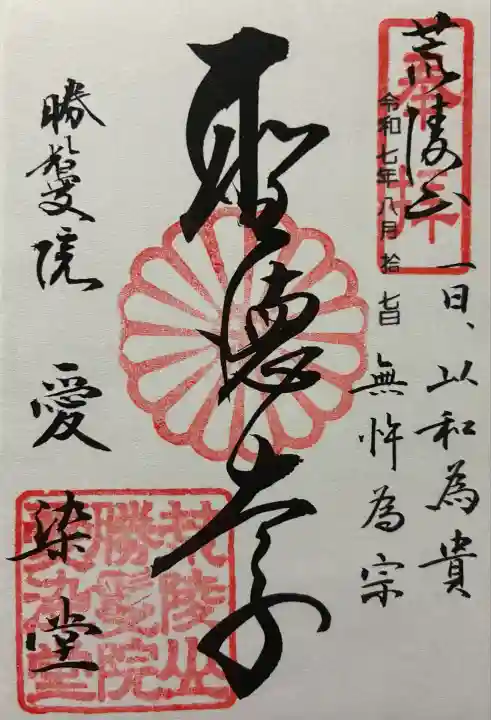 奉拝
荒陵山
令和七年八月拾七日
一曰、以和為貴
無忤為宗
聖徳太子
勝鬘院 愛染堂
荒陵山
勝鬘院
愛染堂